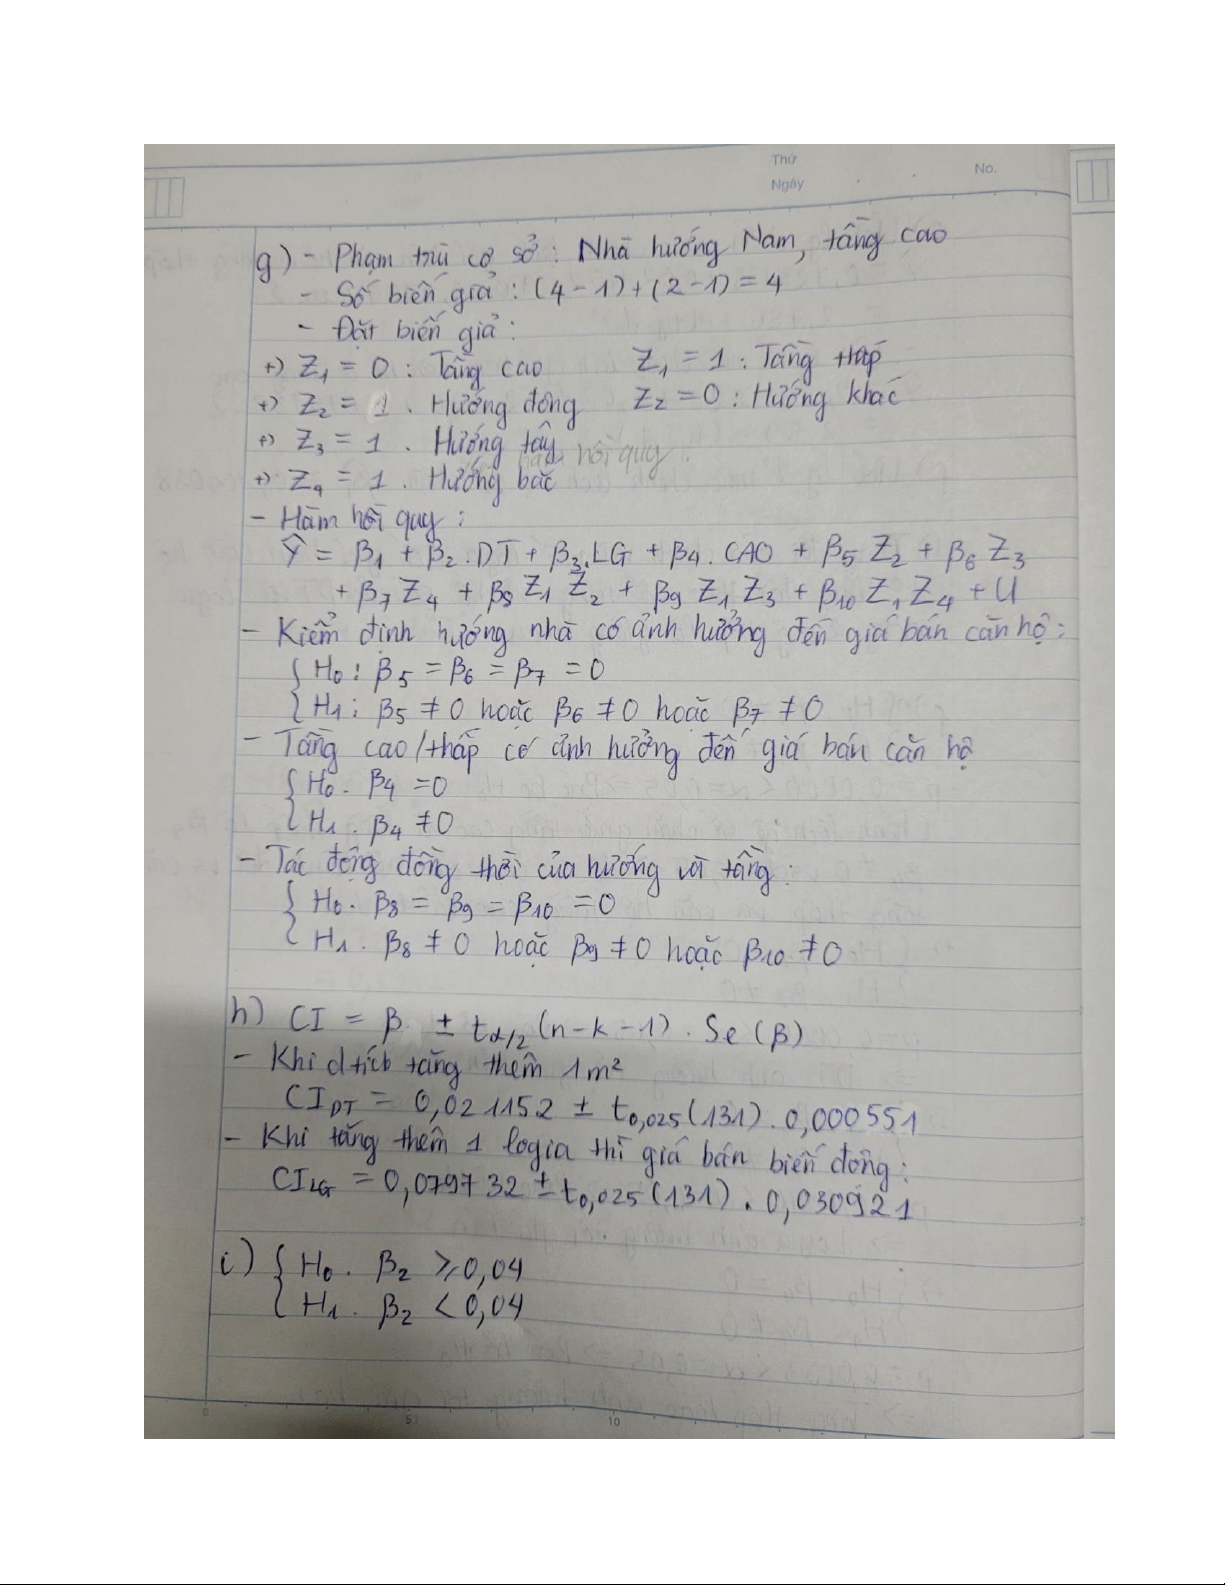 Thứ
Ngày
No.
g) - Phạm trù cơ sở : Nhà hướng Nam, tầng cao
- Số biến giả : (4-1)+(2-1) = 4
- Đặt biến giả :
+) Z₁ = 0 : Tầng cao Z₁ = 1 : Tầng thấp
+) Z₂ = 1 . Hướng đông Z₂ = 0 : Hướng khác
+) Z₃ = 1 . Hướng tây
hồi quy
+) Z₄ = 1 . Hướng bắc
- Hàm hồi quy :
Ŷ = β₁ + β₂.DT + β₃.LG + β₄.CAO + β₅ Z₂ + β₆ Z₃
+ β₇ Z₄ + β₈ Z₁ Z₂ + β₉ Z₁ Z₃ + β₁₀ Z₁ Z₄ + U
- Kiểm định hướng nhà có ảnh hưởng đến giá bán căn hộ :
{ H₀ : β₅ = β₆ = β₇ = 0
H₁ : β₅ ≠ 0 hoặc β₆ ≠ 0 hoặc β₇ ≠ 0
- Tầng cao/thấp có ảnh hưởng đến giá bán căn hộ
{ H₀ . β₄ = 0
H₁ . β₄ ≠ 0
- Tác động đồng thời của hướng và tầng :
{ H₀ . β₈ = β₉ = β₁₀ = 0
H₁ . β₈ ≠ 0 hoặc β₉ ≠ 0 hoặc β₁₀ ≠ 0
h) CI = β ± t_α/2 (n-k-1) . Se (β)
- Khi dtích tăng thêm 1m²
CI_DT = 0,021152 ± t₀,₀₂₅(131) . 0,000551
- Khi tăng thêm 1 logia thì giá bán biến động :
CI_LG = 0,079732 ± t₀,₀₂₅(131) . 0,030921
i) { H₀ . β₂ ⩾ 0,04
H₁ . β₂ < 0,04
0 5 10